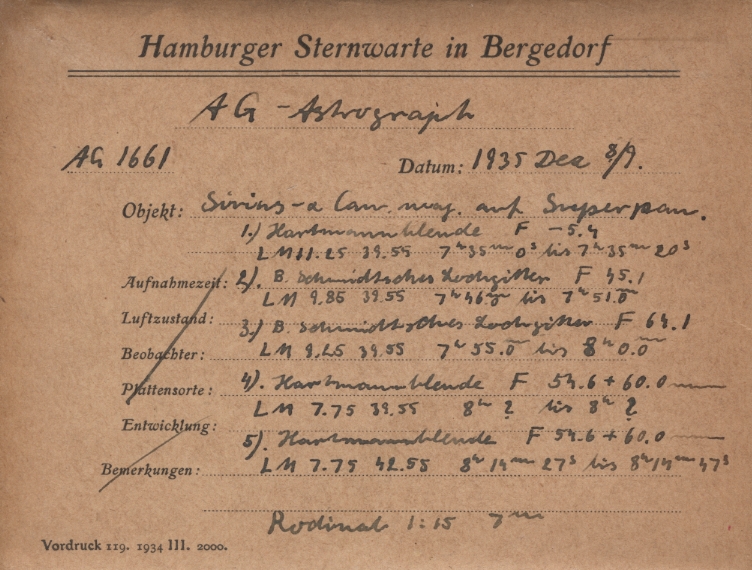 Hamburger Sternwarte in Bergedorf
AG-Astrograph
AG 1661 Datum: 1935 Dez 8/9.
Objekt: Sirius-α Can. maj. auf Superpan.
1.) Hartmannblende F -5.4
LM 11.25 39.55 7ʰ35ᵐ0ˢ bis 7ʰ35ᵐ20ˢ
Aufnahmezeit: 2). B. Schmidtsches Lochgitter F 45.1
LM 9.85 39.55 7ʰ46ᵐ.0 bis 7ʰ51ᵐ.0
Luftzustand: 3.) B. Schmidtsches Lochgitter F 64.1
Beobachter: LM 9.25 39.55 7ʰ55ᵐ.0 bis 8ʰ0ᵐ.0
Plattensorte: 4). Hartmannblende F 54.6 + 60.0
LM 7.75 39.55 8ʰ ? bis 8ʰ ?
Entwicklung: 5). Hartmannblende F 54.6 + 60.0
Bemerkungen: LM 7.75 42.55 8ʰ14ᵐ27ˢ bis 8ʰ14ᵐ47ˢ
Rodinal 1:15 7ᵐ
Vordruck 119. 1934 III. 2000.